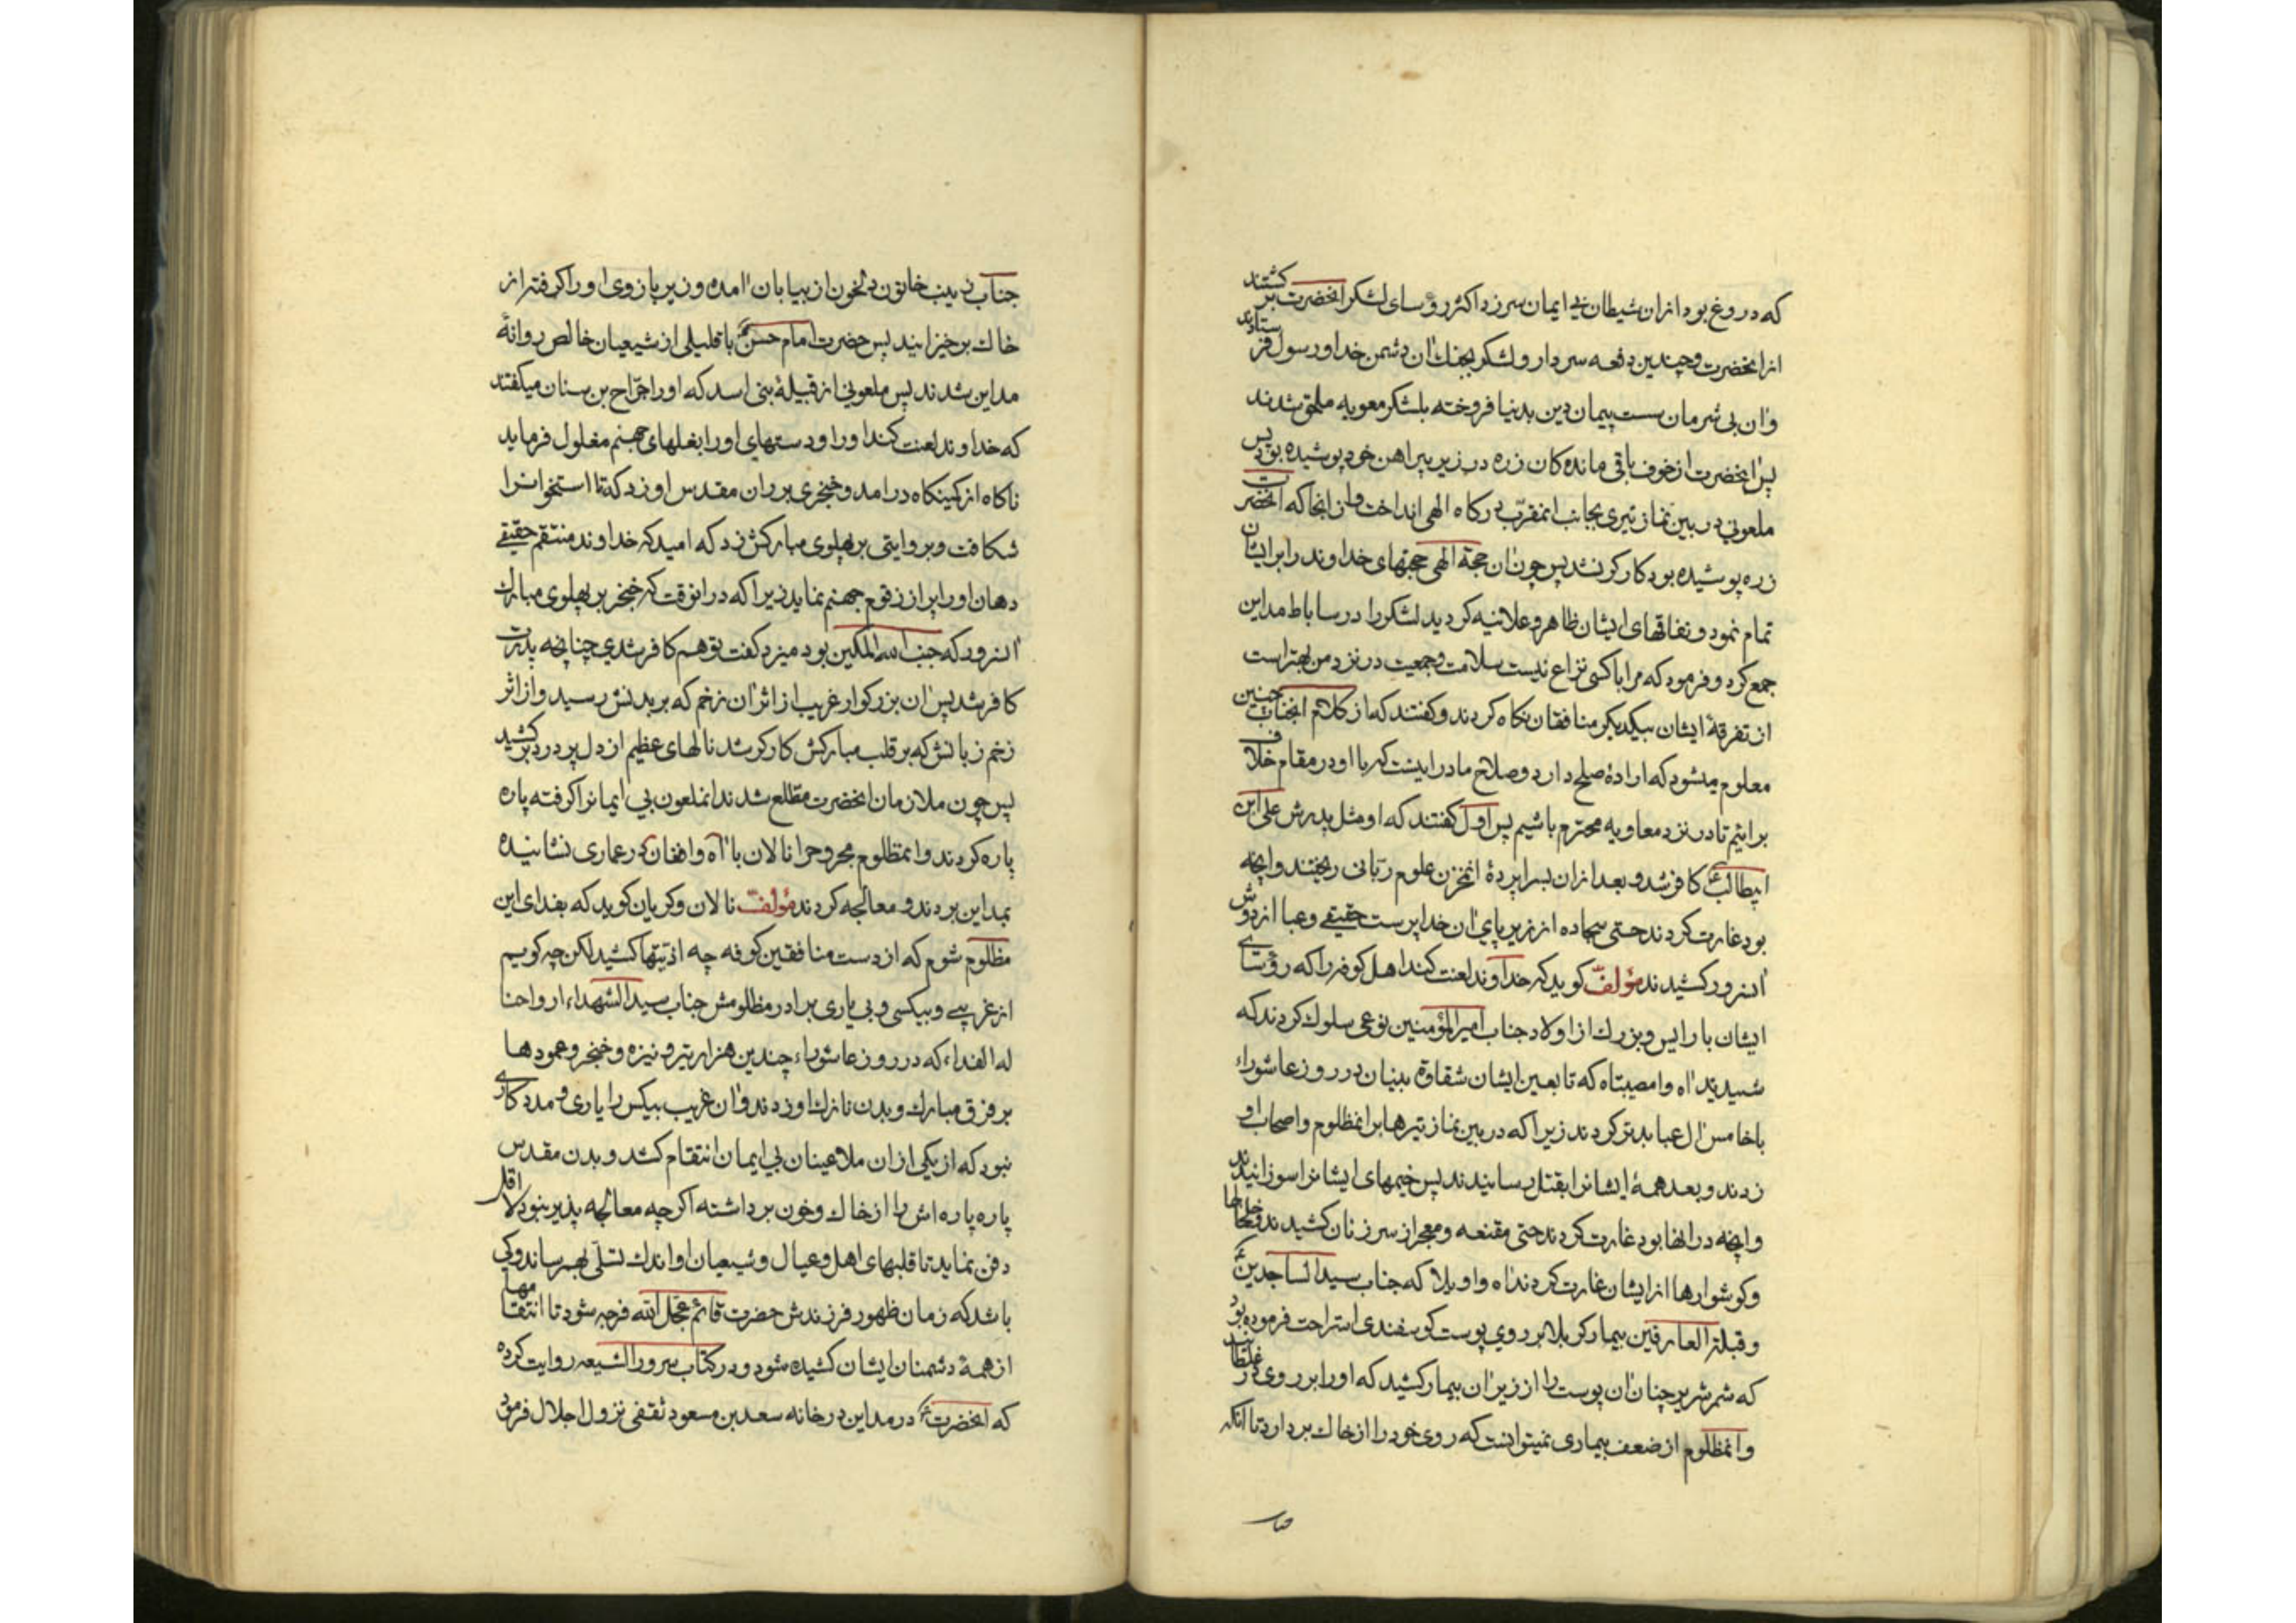 که دروغ بود ازان شیطان بی ایمان سرزد اکثر رؤسای لشکر انحضرت بر کشتند
از انحضرت و چندین دفعه سردار و لشکر بجنك ان دشمن خدا و رسول فرستادند
و ان بی شرمان سست پیمان دین بدنیا فروخته بلشکر معویه ملحق شدند
پس انحضرت از خوف باقی مانده کان زره در زیر پیراهن خود پوشیده بود پس
ملعونی در بین نماز تیری بجانب انمقرّب درکاه الهی انداخت و از انجا که انحضرت
زره پوشیده بود کارکر نشد پس چون ان حجة الهی حجتهای خداوند را بر ایشان
تمام نمود و نفاقهای ایشان ظاهر و علانیه کردید لشکر را در ساباط مداین
جمع کرد و فرمود که مرا با کسی نزاع نیست سلامت و جمعیت در نزد من بهتر است
از تفرقهٔ ایشان بیکدیکر منافقان نکاه کردند و کفتند که از کلام انجناب چنین
معلوم میشود که ارادهٔ صلح دارد و صلاح ما در اینست که با او در مقام خلاف
برایم تا در نزد معاویه محترم باشیم پس اول کفتند که او مثل پدرش علی ابن
ابیطالب ع کافر شد و بعد ازان بسراپردهٔ انمخزن علوم ربّانی ریختند و انچه
بود غارت کردند حتی سجاده از زیر پای ان خداپرست حقیقی و عبا از دوش
انسرور کشیدند مؤلف کوید که خداوند لعنت کند اهل کوفه را که رؤسای
ایشان با رایس و بزرك از اولاد جناب امیرالمؤمنین نوعی سلوك کردند که
شنیدید اه وامصیبتاه که تابعین ایشان شقاوة بنیان در روز عاشوراء
با خامس ال عبا بدتر کردند زیرا که در بین نماز تیرها بر انمظلوم و اصحاب او
زدند و بعد همهٔ ایشانرا بقتل رسانیدند پس خیمهای ایشانرا سوزانیدند
و انچه در انها بود غارت کردند حتی مقنعه و معجر از سر زنان کشیدند و خلخالها
و کوشوارها از ایشان غارت کردند اه واویلا که جناب سید الساجدین ع
و قبلة العارفین بیمار کربلا بر روی پوست کوسفندی استراحت فرموده بود
که شمر شریر چنان ان پوست را از زیر ان بیمار کشید که او را بر روی در غلطانید
و انمظلوم از ضعف بیماری نمیتوانست که روی خود را از خاك بر دارد تا انکه
جناب زینب خاتون دلخون از بیابان امده و زیر بازوی او را کرفته از
خاك برخیزانید پس حضرت امام حسن ع با قلیلی از شیعیان خالص روانهٔ
مداین شدند پس ملعونی از قبیلهٔ بنی اسد که او را جرّاح بن سنان میکفتند
که خداوند لعنت کند او را و دستهای او را بغلهای جهنم مغلول فرماید
ناکاه از کمینکاه در امد و خنجری بر ران مقدس او زد که تا استخوانرا
شکافت و بروایتی بر پهلوی مبارکش زد که امید که خداوند منتقم حقیقی
دهان او را پر از زقوم جهنم نماید زیرا که در انوقت که خنجر بر پهلوی مبارك
انسرور که جنب الله المکین بود میزد کفت تو هم کافر شدی چنانچه پدرت
کافر شد پس ان بزرکوار غریب از اثر ان زخم که بر بدنش رسید و از اثر
زخم زبانش که بر قلب مبارکش کارکر شد نالهای عظیم از دل پر درد بر کشید
پس چون ملازمان انحضرت مطّلع شدند انملعون بی ایمانرا کرفته پاره
پاره کردند و انمظلوم مجروح را نالان با اه و افغان در عماری نشانیده
بمداین بردند و معالجه کردند مؤلف نالان و کریان کوید که بفدای این
مظلوم شوم که از دست منافقین کوفه چه اذیّتها کشید لکن چه کویم
از غریبی و بیکسی و بی یاری برادر مظلومش جناب سید الشهداء ارواحنا
له الفداء که در روز عاشوراء چندین هزار تیر و نیزه و خنجر و عمودها
بر فرق مبارك و بدن نازك او زدند و ان غریب بیکس را یاری و مددکاری
نبود که از یکی از ان ملاعینان بی ایمان انتقام کشد و بدن مقدس
پاره پاره اش را از خاك و خون برداشته اکرچه معالجه پذیر نبود لا اقل
دفن نماید تا قلبهای اهل و عیال و شیعیان او اندك تسلّی بهمرساند و کی
باشد که زمان ظهور فرزندش حضرت قائم عجّل الله فرجه شود تا انتقامها
از همهٔ دشمنان ایشان کشیده شود و در کتاب سرور الشیعه روایت کرده
که انحضرت ع در مداین در خانه سعد بن مسعود ثقفی نزول اجلال فرمود